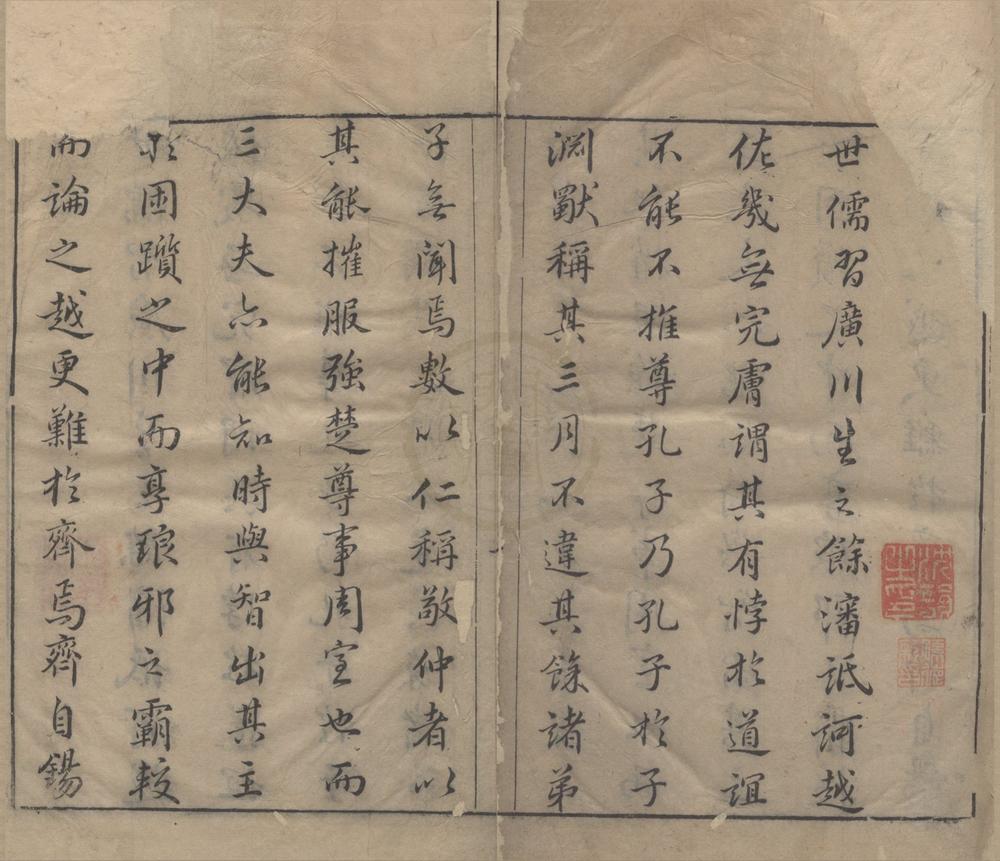 世儒習廣川生之餘瀋詆訶越
佐幾無完膚謂其有悖於道誼
不能不推尊孔子乃孔子於子
淵猒稱其三月不違其餘諸弟
子無聞焉數以仁稱敬仲者以
其能摧服強楚尊事周室也而
三大夫亦能知時與智出其主
於困躓之中而享琅邪之霸較
而論之越更難於齊焉齊自錫